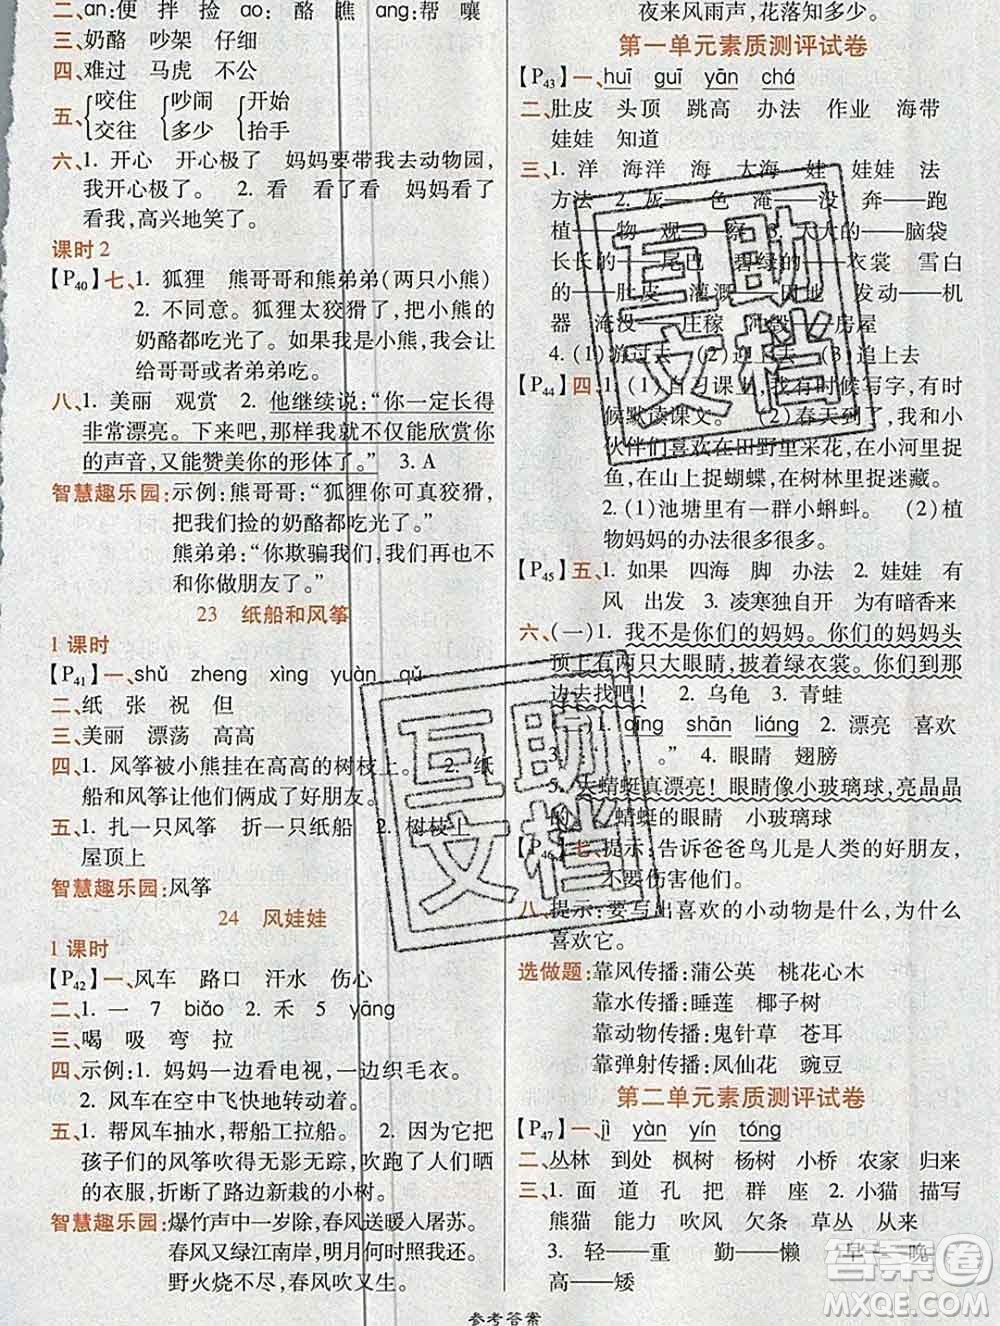 二、an:便 拌 捡 ao:酪 瞧 ang:帮 嚷
三、奶酪 吵架 仔细
四、难过 马虎 不公
五、{咬住 交往 {吵闹 多少 {开始 抬手
六、1. 开心 开心极了 妈妈要带我去动物园,
我开心极了。 2. 看 看了看 妈妈看了
看我,高兴地笑了。
课时2
【P40】七、1. 狐狸 熊哥哥和熊弟弟(两只小熊)
2. 不同意。狐狸太狡猾了,把小熊的
奶酪都吃光了。如果我是小熊,我会让
给哥哥或者弟弟吃。
八、1. 美丽 观赏 2. 他继续说:“你一定长得
非常漂亮。下来吧,那样我就不仅能欣赏你
的声音,又能赞美你的形体了。” 3. A
智慧趣乐园:示例:熊哥哥:“狐狸你可真狡猾,
把我们捡的奶酪都吃光了。”
熊弟弟:“你欺骗我们,我们再也不
和你做朋友了。”
23 纸船和风筝
1课时
【P41】一、shǔ zheng xìng yuàn qǔ
二、纸 张 祝 但
三、美丽 漂荡 高高
四、1. 风筝被小熊挂在高高的树枝上。 2. 纸
船和风筝让他们俩成了好朋友。
五、1. 扎一只风筝 折一只纸船 2. 树枝上
屋顶上
智慧趣乐园:风筝
24 风娃娃
1课时
【P42】一、风车 路口 汗水 伤心
二、1. 一 7 biǎo 2. 禾 5 yāng
三、喝 吸 弯 拉
四、示例:1. 妈妈一边看电视,一边织毛衣。
2. 风车在空中飞快地转动着。
五、1. 帮风车抽水,帮船工拉船。 2. 因为它把
孩子们的风筝吹得无影无踪,吹跑了人们晒
的衣服,折断了路边新栽的小树。
智慧趣乐园:爆竹声中一岁除,春风送暖入屠苏。
春风又绿江南岸,明月何时照我还。
野火烧不尽,春风吹又生。
夜来风雨声,花落知多少。
第一单元素质测评试卷
【P43】一、huī guī yān chá
二、肚皮 头顶 跳高 办法 作业 海带
娃娃 知道
三、1. 洋 海洋 海 大海 娃 娃娃 法
方法 2. 灰——色 淹——没 奔——跑
植——物 观——察 3. 大大的——脑袋
长长的——尾巴 碧绿的——衣裳 雪白
的——肚皮 灌溉——田地 发动——机
器 淹没——庄稼 冲毁——房屋
4. (1)游过去 (2)迎上去 (3)追上去
【P44】四、1. (1)自习课上,我有时候写字,有时
候默读课文。 (2)春天到了,我和小
伙伴们喜欢在田野里采花,在小河里捉
鱼,在山上捉蝴蝶,在树林里捉迷藏。
2. (1)池塘里有一群小蝌蚪。 (2)植
物妈妈的办法很多很多。
【P45】五、1. 如果 四海 脚 办法 2. 娃娃 有
风 出发 3. 凌寒独自开 为有暗香来
六、(一)1. 我不是你们的妈妈。你们的妈妈头
顶上有两只大眼睛,披着绿衣裳。你们到那
边去找吧! 2. 乌龟 3. 青蛙
(二)1. qīng shān liáng 2. 漂亮 喜欢
3. : , 。” 4. 眼睛 翅膀
5. 大蜻蜓真漂亮!眼睛像小玻璃球,亮晶晶
的。 蜻蜓的眼睛 小玻璃球
【P46】七、提示:告诉爸爸鸟儿是人类的好朋友,
不要伤害他们。
八、提示:要写出喜欢的小动物是什么,为什么
喜欢它。
选做题:靠风传播:蒲公英 桃花心木
靠水传播:睡莲 椰子树
靠动物传播:鬼针草 苍耳
靠弹射传播:凤仙花 豌豆
第二单元素质测评试卷
【P47】一、jì yàn yín tóng
二、丛林 到处 枫树 杨树 小桥 农家 归来
三、1. 面 道 孔 把 群 座 2. 小猫 描写
熊猫 能力 吹风 欠条 草丛 从来
3. 轻——重 勤——懒 早——晚
高——矮
参考答案
互助文档
互助文档
答案圈
MXQE.COM